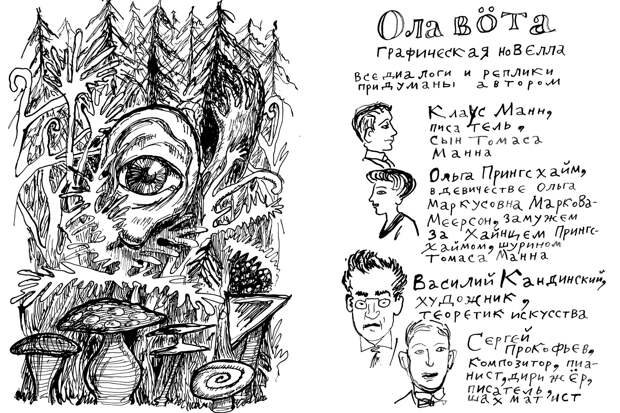 Ола вӧта
графическая новелла
все диалоги и реплики
придуманы автором
Клаус Манн,
писатель,
сын Томаса
Манна
Ольга Прингсхайм,
в девичестве Ольга
Маркусовна Маркова-
Меерсон, замужем
за Хайнцем Прингс-
хаймом, шурином
Томаса Манна
Василий Кандинский,
художник,
теоретик искусства
Сергей
Прокофьев,
композитор, пиа-
нист, дирижёр,
писатель,
шахматист